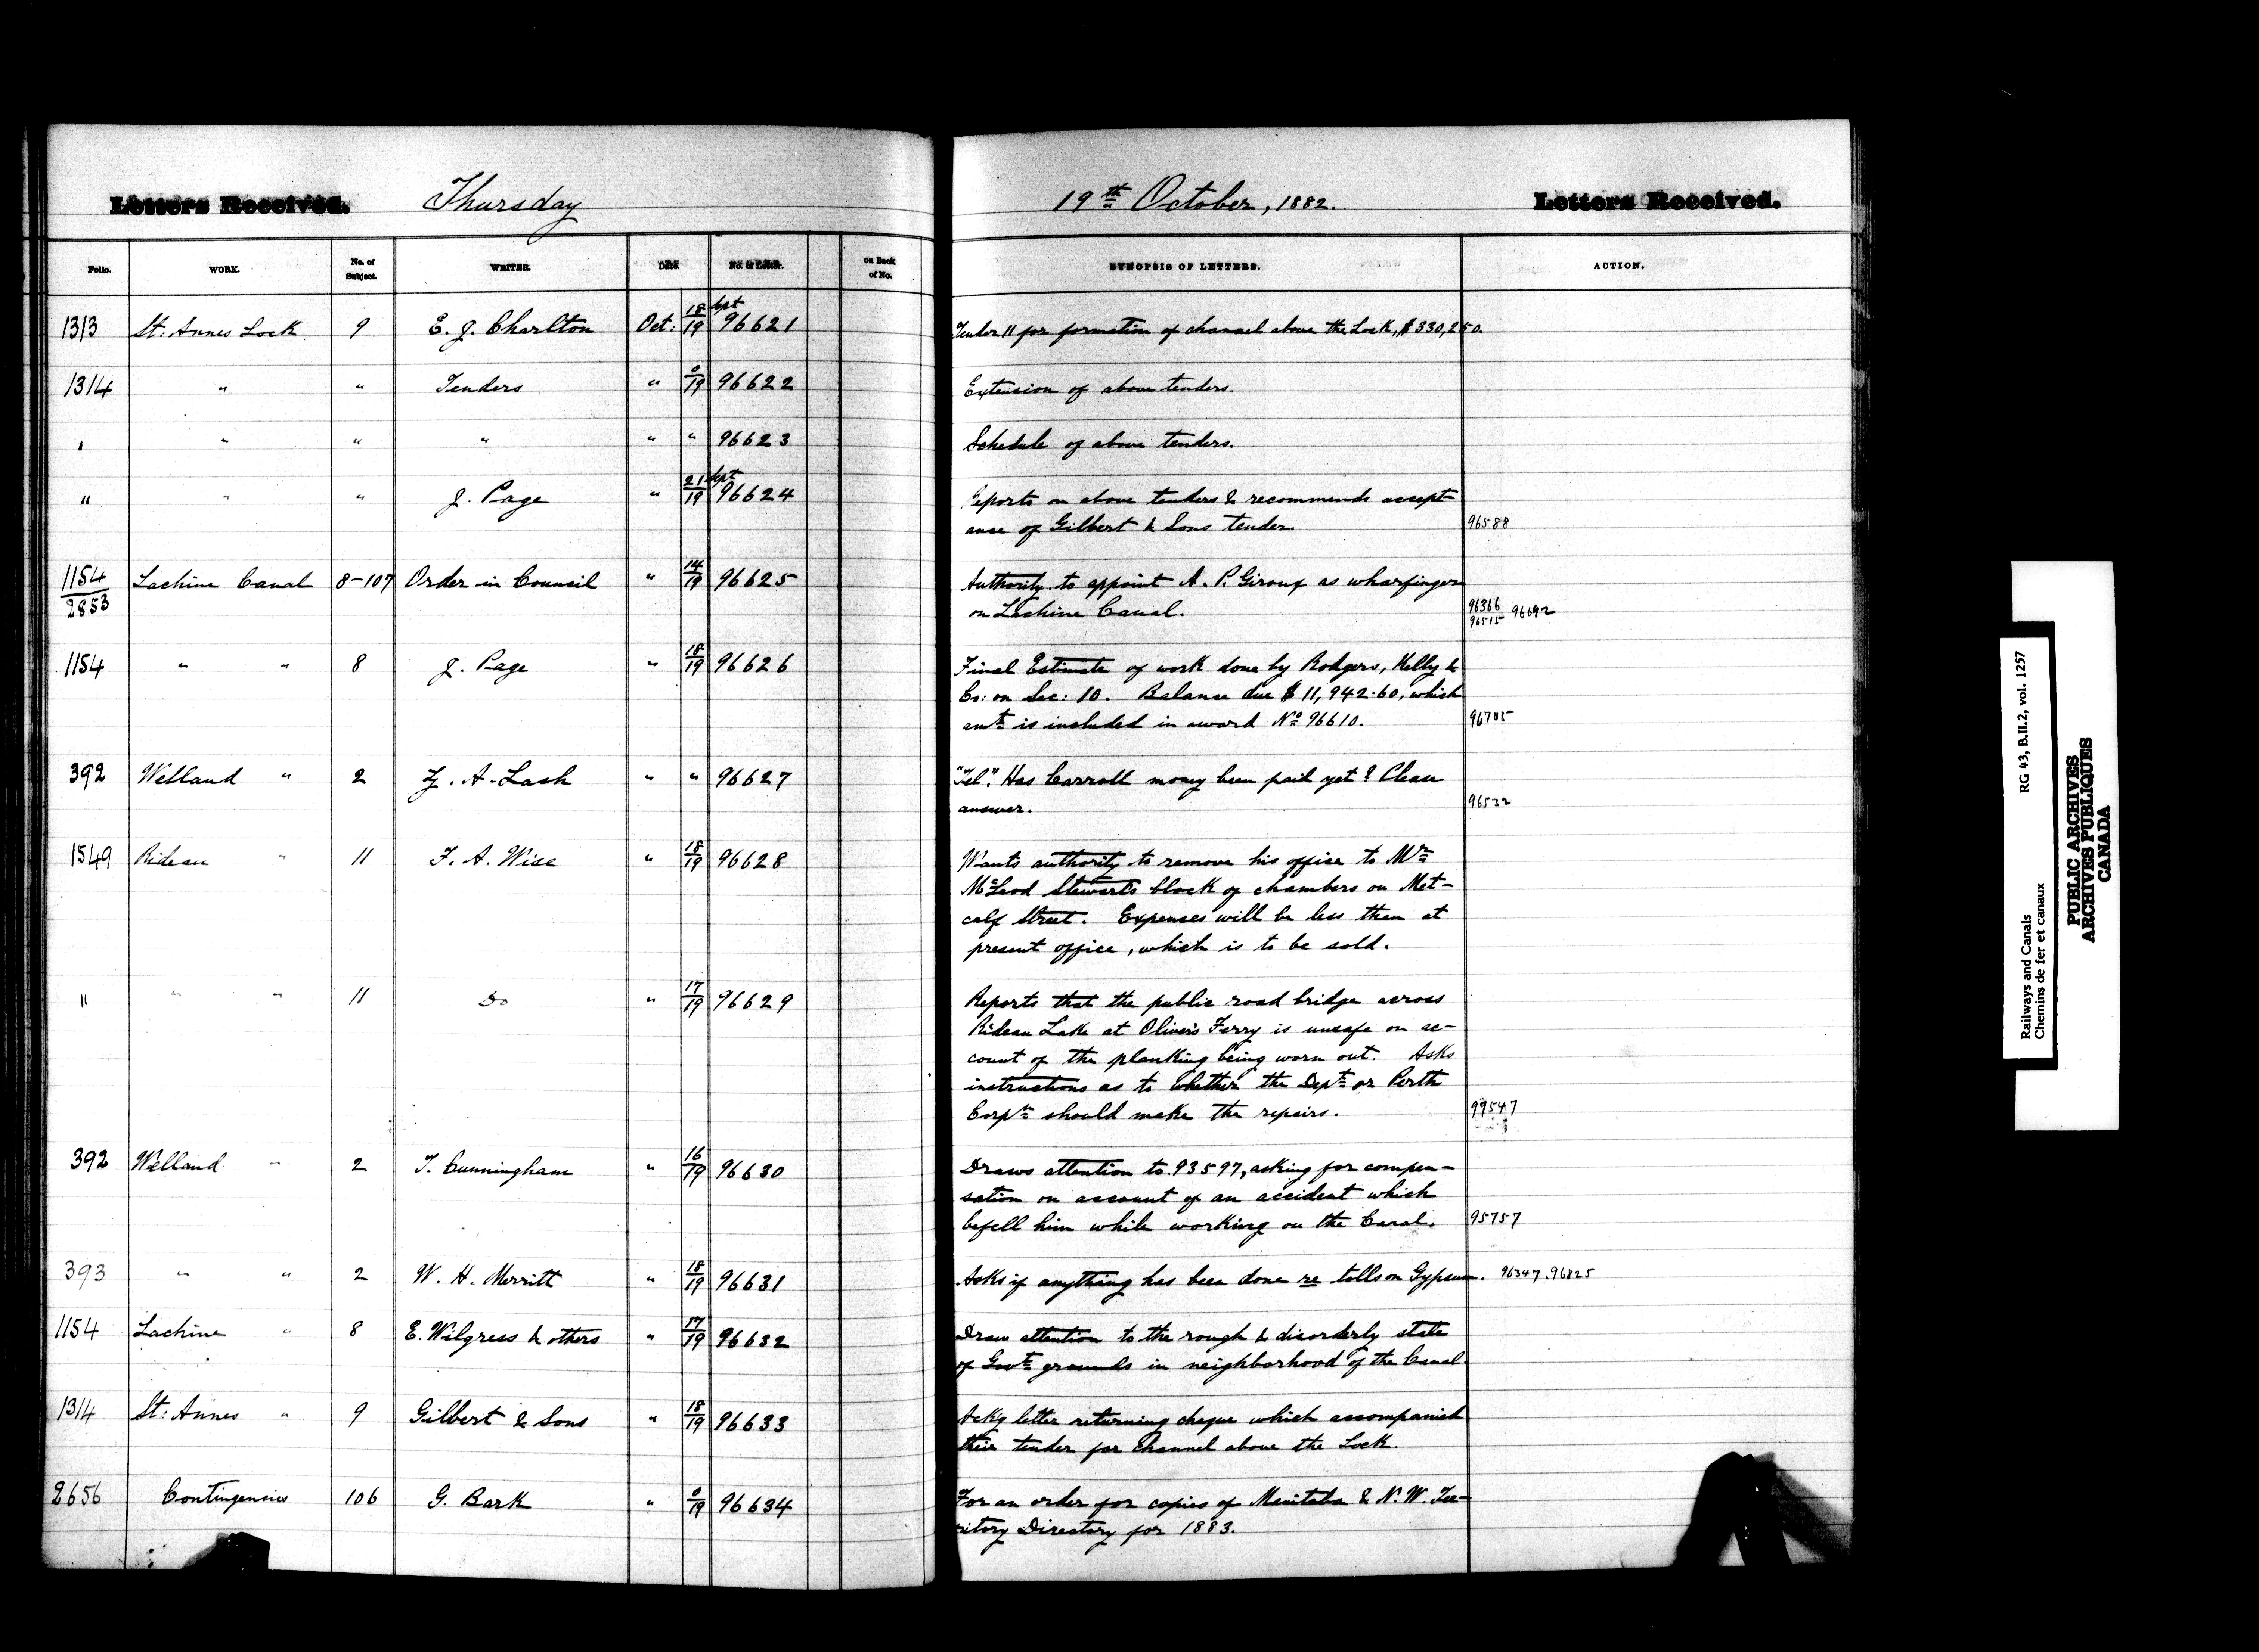 Letters Received. Thursday 19th October, 1882. Letters Received.
Folio. WORK. No. of Subject. WRITER. Date No. of Letter. on Back of No. SYNOPSIS OF LETTERS. ACTION.
1313 St: Annes Lock 9 E. J. Charlton Oct: 18/19 Sept 96621 Tender 11 for formation of channel above the Lock, $330,250.
1314 " " Tenders " 0/19 96622 Extension of above tenders.
" " " " " " 96623 Schedule of above tenders.
" " " J. Page " 21/19 Sept 96624 Reports on above tenders & recommends accept-
ance of Gilbert & Sons tender. 96588
1154/2853 Lachine Canal 8-107 Order in Council " 14/19 96625 Authority to appoint A. P. Giroux as wharfinger
on Lachine Canal. 96366 96515 96692
1154 " " 8 J. Page " 18/19 96626 Final Estimate of work done by Rodgers, Kelly &
Co: on Sec: 10. Balance due $11,942.60, which
amt is included in award No 96610. 96705
392 Welland " 2 Z. A. Lash " " 96627 "Tel". Has Carroll money been paid yet? Please
answer. 96532
1549 Rideau " 11 F. A. Wise " 18/19 96628 Wants authority to remove his office to Mr
McLeod Stewart's block of chambers on Met-
calf Street. Expenses will be less than at
present office, which is to be sold.
" " " 11 Do " 17/19 96629 Reports that the public road bridge across
Rideau Lake at Oliver's Ferry is unsafe on ac-
count of the planking being worn out. Asks
instructions as to whether the Dept or Perth
Corptn should make the repairs. 99547
392 Welland " 2 T. Cunningham " 16/19 96630 Draws attention to 93597, asking for compen-
sation on account of an accident which
befell him while working on the Canal. 95757
393 " " 2 W. H. Merritt " 18/19 96631 Asks if anything has been done re tolls on Gypsum. 96347.96825
1154 Lachine " 8 E. Wilgress & others " 17/19 96632 Draw attention to the rough & disorderly state
of Govt grounds in neighborhood of the Canal.
1314 St: Annes " 9 Gilbert & Sons " 18/19 96633 Ackg letter returning cheque which accompanied
their tender for channel above the Lock.
2656 Contingencies 106 G. Bark " 0/19 96634 For an order for copies of Manitoba & N. W. Ter-
ritory Directory for 1883.
Railways and Canals RG 43, B.II.2, vol. 1257
Chemins de fer et canaux
PUBLIC ARCHIVES
ARCHIVES PUBLIQUES
CANADA